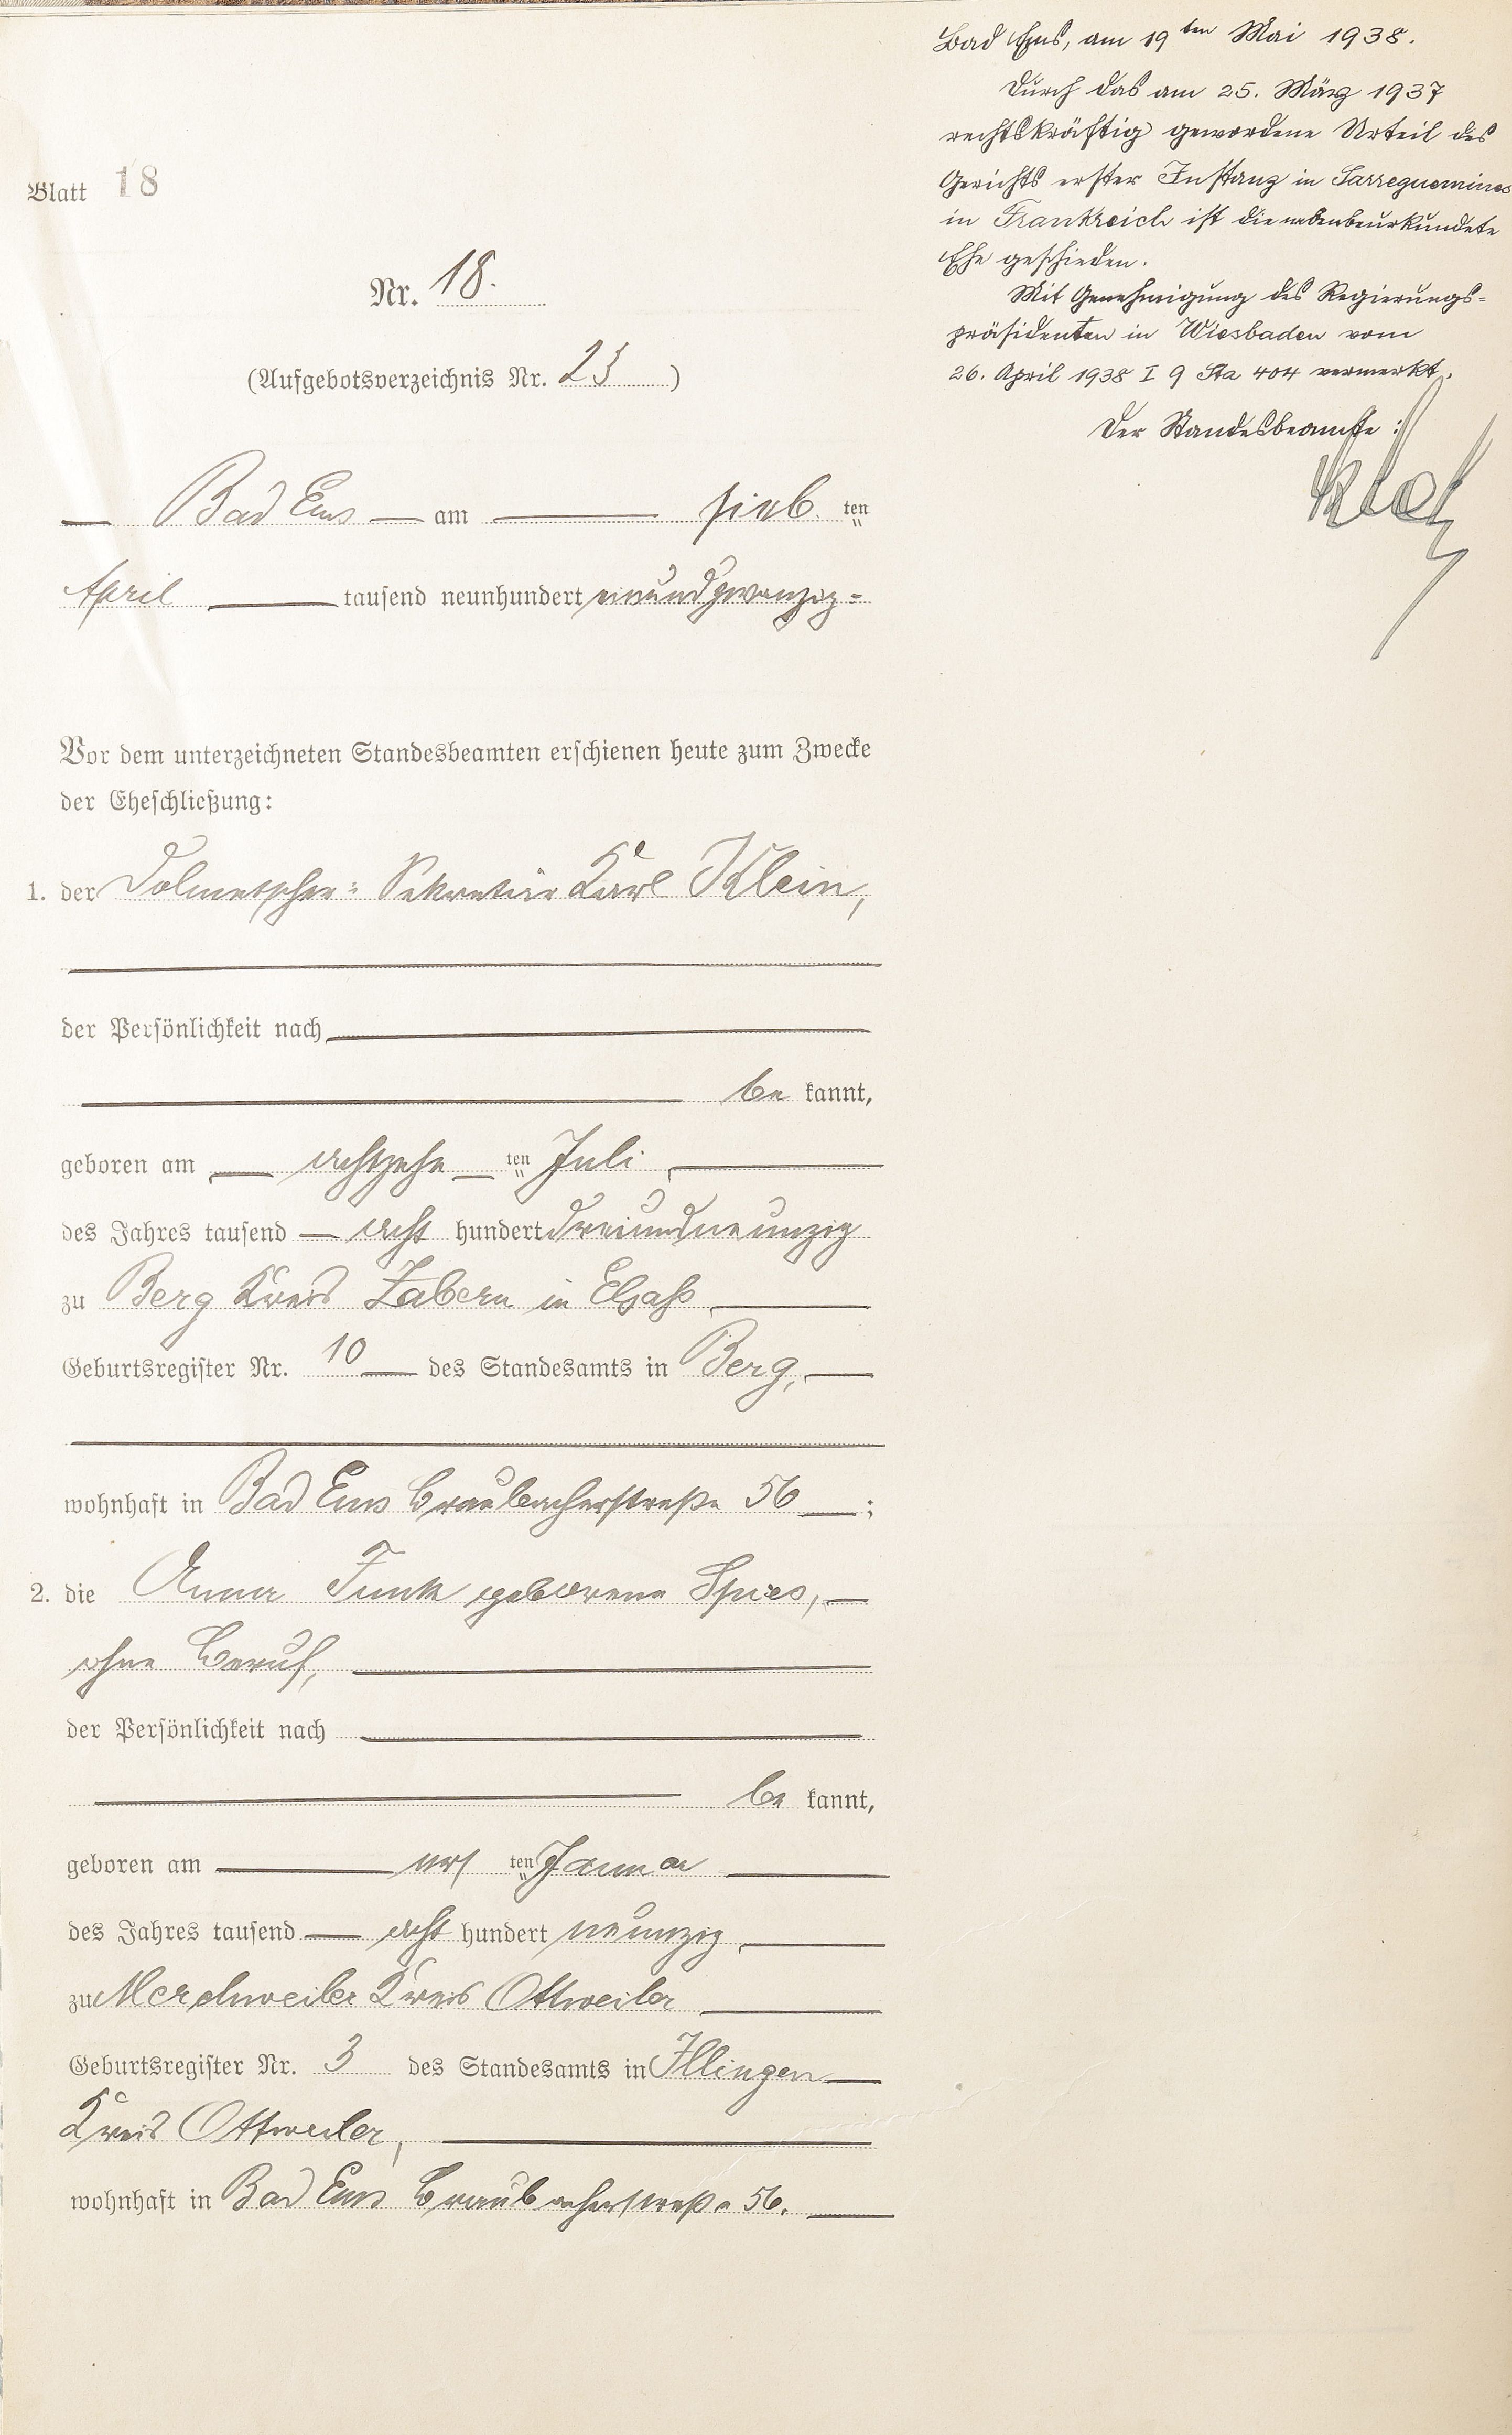 Blatt 18
Nr. 18.
(Aufgebotsverzeichnis Nr. 23)
Bad Ems am sieb ten
April tausend neunhundert einundzwanzig -
Vor dem unterzeichneten Standesbeamten erschienen heute zum Zwecke
der Eheschließung:
1. der Dolmetscher-Sekretär Karl Klein,
der Persönlichkeit nach
be kannt,
geboren am achtzehn ten Juli
des Jahres tausend acht hundert dreiundneunzig
zu Berg Kreis Zabern in Elsaß
Geburtsregister Nr. 10 des Standesamts in Berg,
wohnhaft in Bad Ems Braubacherstraße 56 ;
2. die Anna Funk geborene Spies,
ohne Beruf,
der Persönlichkeit nach
be kannt,
geboren am ers ten Januar
des Jahres tausend acht hundert neunzig
zu Merchweiler Kreis Ottweiler
Geburtsregister Nr. 3 des Standesamts in Illingen
Kreis Ottweiler,
wohnhaft in Bad Ems Braubacherstraße 56.
Bad Ems, am 19ten Mai 1938.
Durch das am 25. März 1937
rechtskräftig gewordene Urteil des
Gerichts erster Instanz in Sarreguemines
in Frankreich ist die nebenbeurkundete
Ehe geschieden.
Mit Genehmigung des Regierungs-
präsidenten in Wiesbaden vom
26. April 1938 I 9 Sta 404 vermerkt.
Der Standesbeamte: